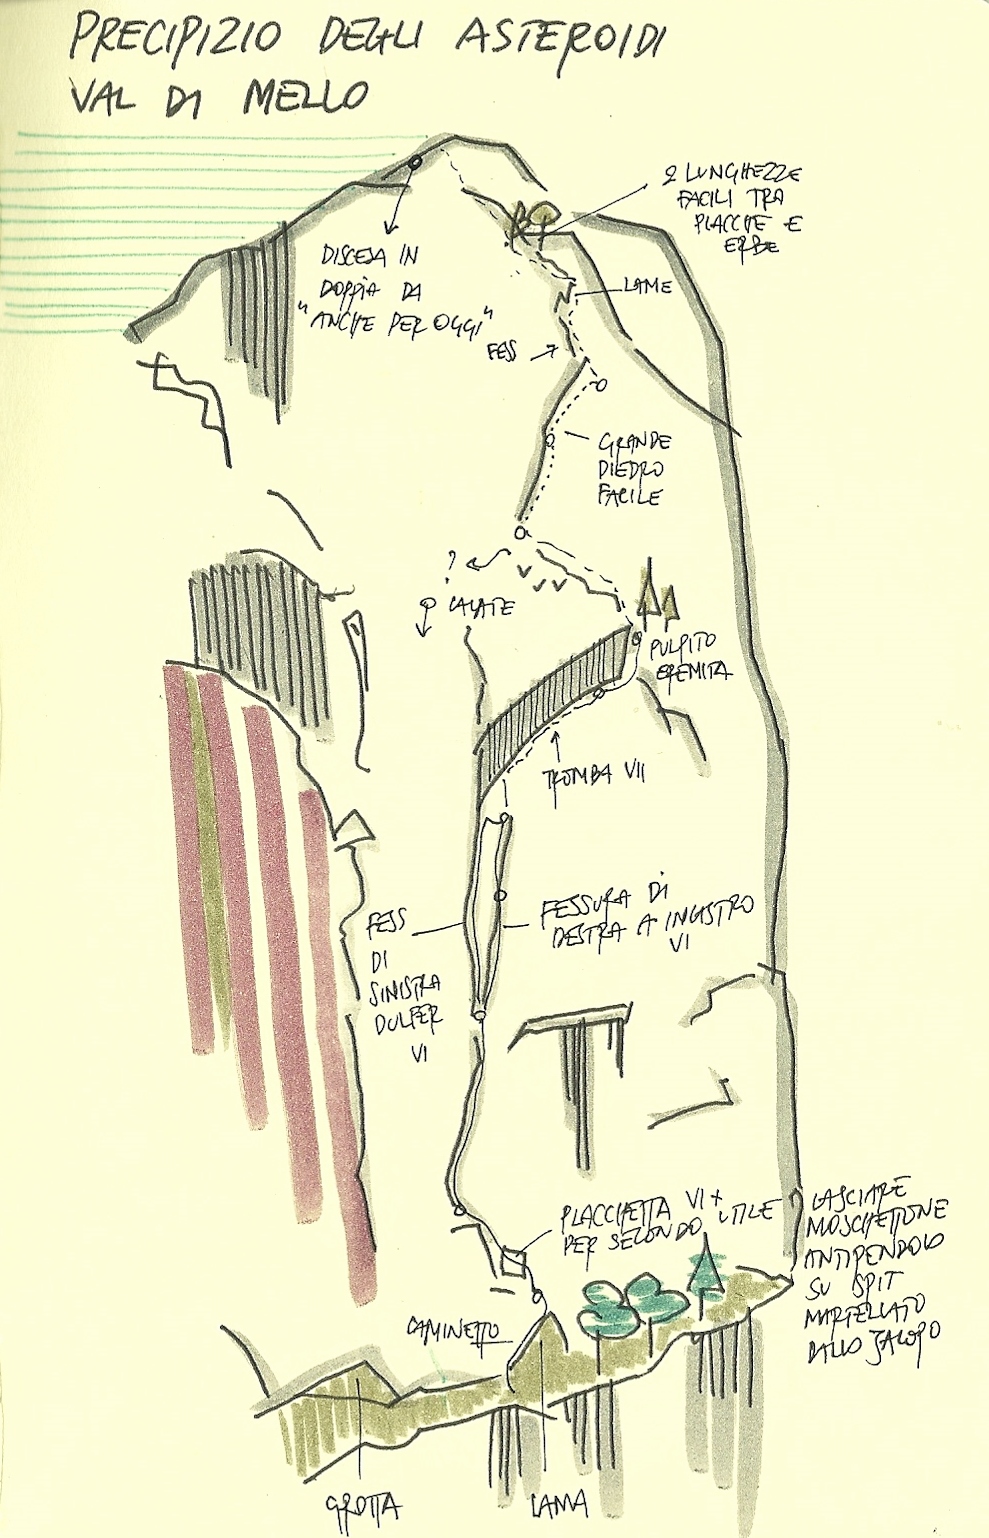 PRECIPIZIO DEGLI ASTEROIDI
VAL DI MELLO
2 LUNGHEZZE
FACILI TRA
PLACCHE E
ERBE
DISCESA IN
DOPPIA DA
"ANCHE PER OGGI"
LAME
FESS
GRANDE
DIEDRO
FACILE
?
CALATE
PULPITO
EREMITA
TROMBA VII
FESS
DI
SINISTRA
DULFER
VI
FESSURA DI
DESTRA A INCASTRO
VI
PLACCHETTA VI+
PER SECONDO UTILE
LASCIARE
MOSCHETTONE
ANTIPENDOLO
SU SPIT
MARTELLATO
DALLO JACOPO
CAMINETTO
GROTTA
LAMA